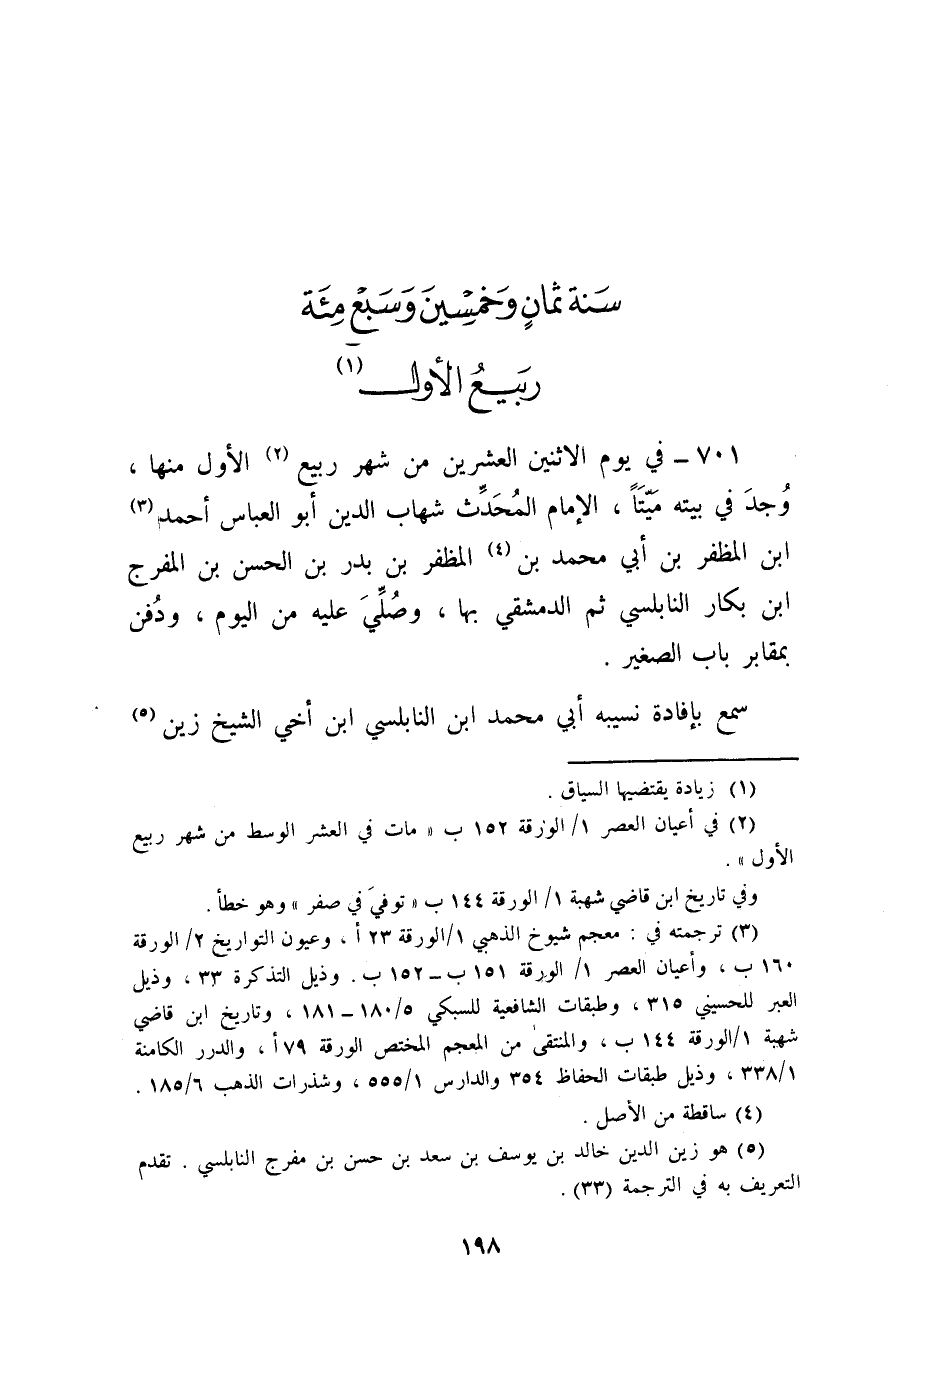 سنة ثمانٍ وخمسينَ وسبع مِئَة
ربيعُ الأول (١)
٧٠١ ــ في يوم الاثنين العشرين من شهر ربيع (٢) الأول منها ،
وُجدَ في بيته مَيّتاً ، الإمام المُحَدِّث شهاب الدين أبو العباس أحمد (٣)
ابن المظفر بن أبي محمد بن (٤) المظفر بن بدر بن الحسن بن المفرج
ابن بكار النابلسي ثم الدمشقي بها ، وصُلِّيَ عليه من اليوم ، ودُفن
بمقابر باب الصغير .
سمع بإفادة نسيبه أبي محمد ابن النابلسي ابن أخي الشيخ زين (٥)
(١) زيادة يقتضيها السياق .
(٢) في أعيان العصر ١/ الورقة ١٥٢ ب « مات في العشر الوسط من شهر ربيع
الأول » .
وفي تاريخ ابن قاضي شهبة ١/ الورقة ١٤٤ ب « توفيَ في صفر » وهو خطأ .
(٣) ترجمته في : معجم شيوخ الذهبي ١/الورقة ٢٣ أ ، وعيون التواريخ ٢/ الورقة
١٦٠ ب ، وأعيان العصر ١/ الورقة ١٥١ ب ــ ١٥٢ ب . وذيل التذكرة ٣٣ ، وذيل
العبر للحسيني ٣١٥ ، وطبقات الشافعية للسبكي ١٨٠/٥ ــ ١٨١ ، وتاريخ ابن قاضي
شهبة ١/الورقة ١٤٤ ب ، والمنتقىٰ من المعجم المختص الورقة ٧٩ أ ، والدرر الكامنة
٣٣٨/١ ، وذيل طبقات الحفاظ ٣٥٤ والدارس ٥٥٥/١ ، وشذرات الذهب ١٨٥/٦ .
(٤) ساقطة من الأصل .
(٥) هو زين الدين خالد بن يوسف بن سعد بن حسن بن مفرج النابلسي . تقدم
التعريف به في الترجمة (٣٣) .
١٩٨